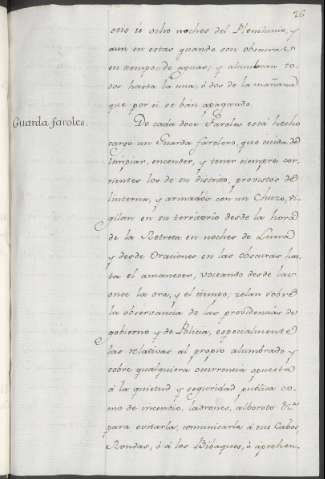 26
siete ú ocho noches del Plenilunio, y
aun en estas quando son obscuras
en tiempo de aguas; y alumbran to-
dos hasta la una, ó dos de la mañana
que por sí se bán apagando.
Guarda faroles.
De cada doce Faroles está hecho
cargo un Guarda farolero, que cuida de
limpiar, encender, y tener siempre cor-
rientes los de su distrito, provistos de
linterna, y armados con un Chuzo, vi-
gilan en su territorio desde la hora
de la Retreta en noches de Luna
y desde Oraciones en las obscuras has-
ta el amanecer, voceando desde las
once la ora, y el tiempo, zelan sobre
la observancia de las providencias de
govierno y de Policia, especialmente
las relativas al propio alumbrado y
sobre qualquiera ocurrencia opuesta
á la quietud y seguridad publica co-
mo de incendio, ladrones, alboroto &a.
para evitarla, comunicarla á sus Cabos
Rondas, ó á los Bibaques, ó aprehen-